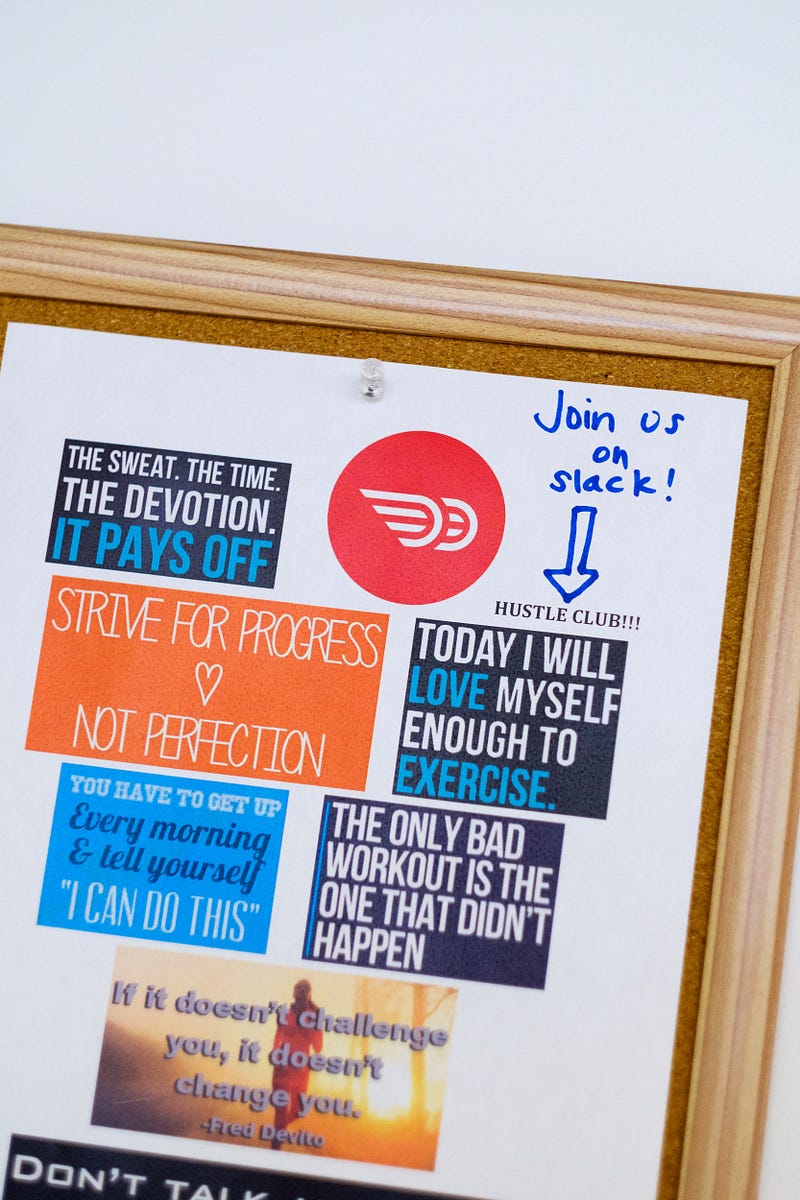 Join us
on
slack!
THE SWEAT. THE TIME.
THE DEVOTION.
IT PAYS OFF
HUSTLE CLUB!!!
STRIVE FOR PROGRESS
NOT PERFECTION
TODAY I WILL
LOVE MYSELF
ENOUGH TO
EXERCISE.
YOU HAVE TO GET UP
Every morning
& tell yourself
"I CAN DO THIS"
THE ONLY BAD
WORKOUT IS THE
ONE THAT DIDN'T
HAPPEN
If it doesn't challenge
you, it doesn't
change you.
-Fred Devito
DON'T TALK